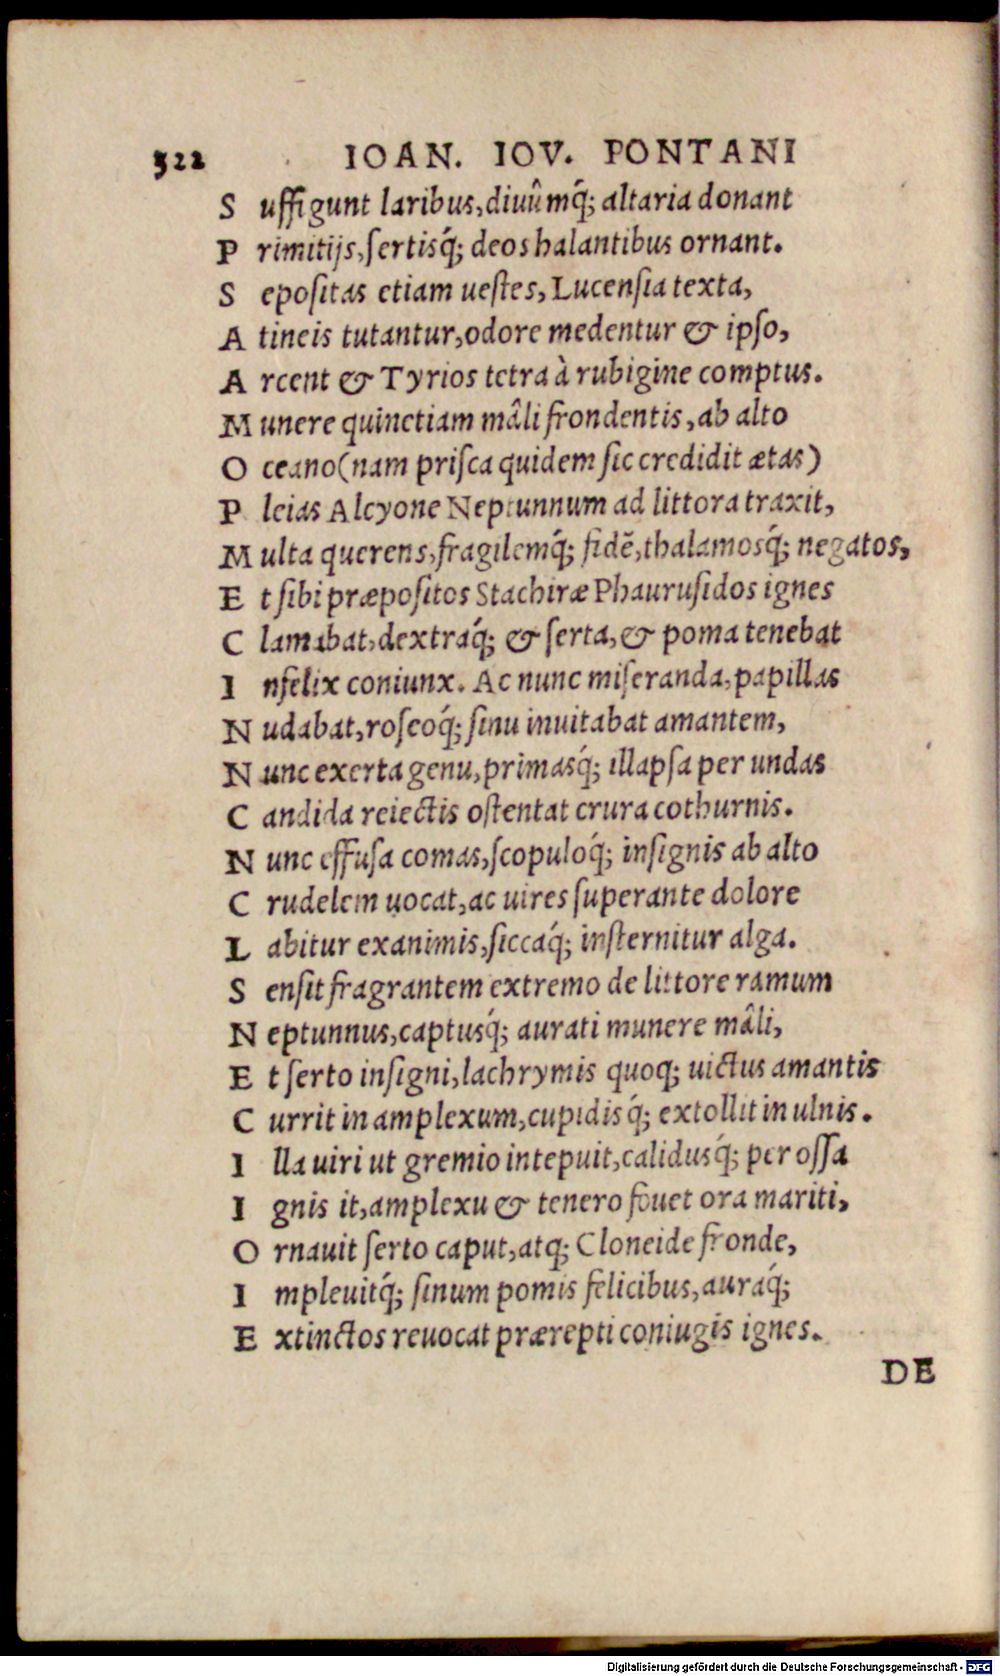 322 IOAN. IOV. PONTANI
S uffigunt laribus, diuûmq́; altaria donant
P rimitijs, sertisq́; deos halantibus ornant.
S epositas etiam uestes, Lucensia texta,
A tineis tutantur, odore medentur & ipso,
A rcent & Tyrios tetra à rubigine comptus.
M unere quinetiam mâli frondentis, ab alto
O ceano (nam prisca quidem sic credidit ætas)
P leias Alcyone Neptunnum ad littora traxit,
M ulta querens, fragilemq́; fidẽ, thalamosq́; negatos,
E t sibi præpositos Stachiræ Phaurusidos ignes
C lamabat, dextraq́; & serta, & poma tenebat
I nfelix coniunx. Ac nunc miseranda, papillas
N udabat, roseoq́; sinu inuitabat amantem,
N unc exerta genu, primasq́; illapsa per undas
C andida reiectis ostentat crura cothurnis.
N unc effusa comas, scopuloq́; insignis ab alto
C rudelem uocat, ac uires superante dolore
L abitur exanimis, siccaq́; insternitur alga.
S ensit fragrantem extremo de littore ramum
N eptunnus, captusq́; aurati munere mâli,
E t serto insigni, lachrymis quoq; uictus amantis
C urrit in amplexum, cupidisq́; extollit in ulnis.
I lla uiri ut gremio intepuit, calidusq́; per ossa
I gnis it, amplexu & tenero fouet ora mariti,
O rnauit serto caput, atq; Cloneide fronde,
I mpleuitq́; sinum pomis felicibus, auraq́;
E xtinctos reuocat prærepti coniugis ignes.
DE
Digitalisierung gefördert durch die Deutsche Forschungsgemeinschaft - DFG